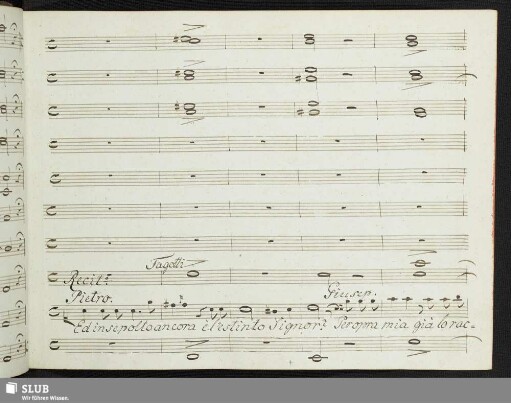 Fagotti
Recit:
Pietro.
Giusep.
Ed insepolto ancora è l'estinto Signor? Per opra mia già lo rac-
SLUB
Wir führen Wissen.